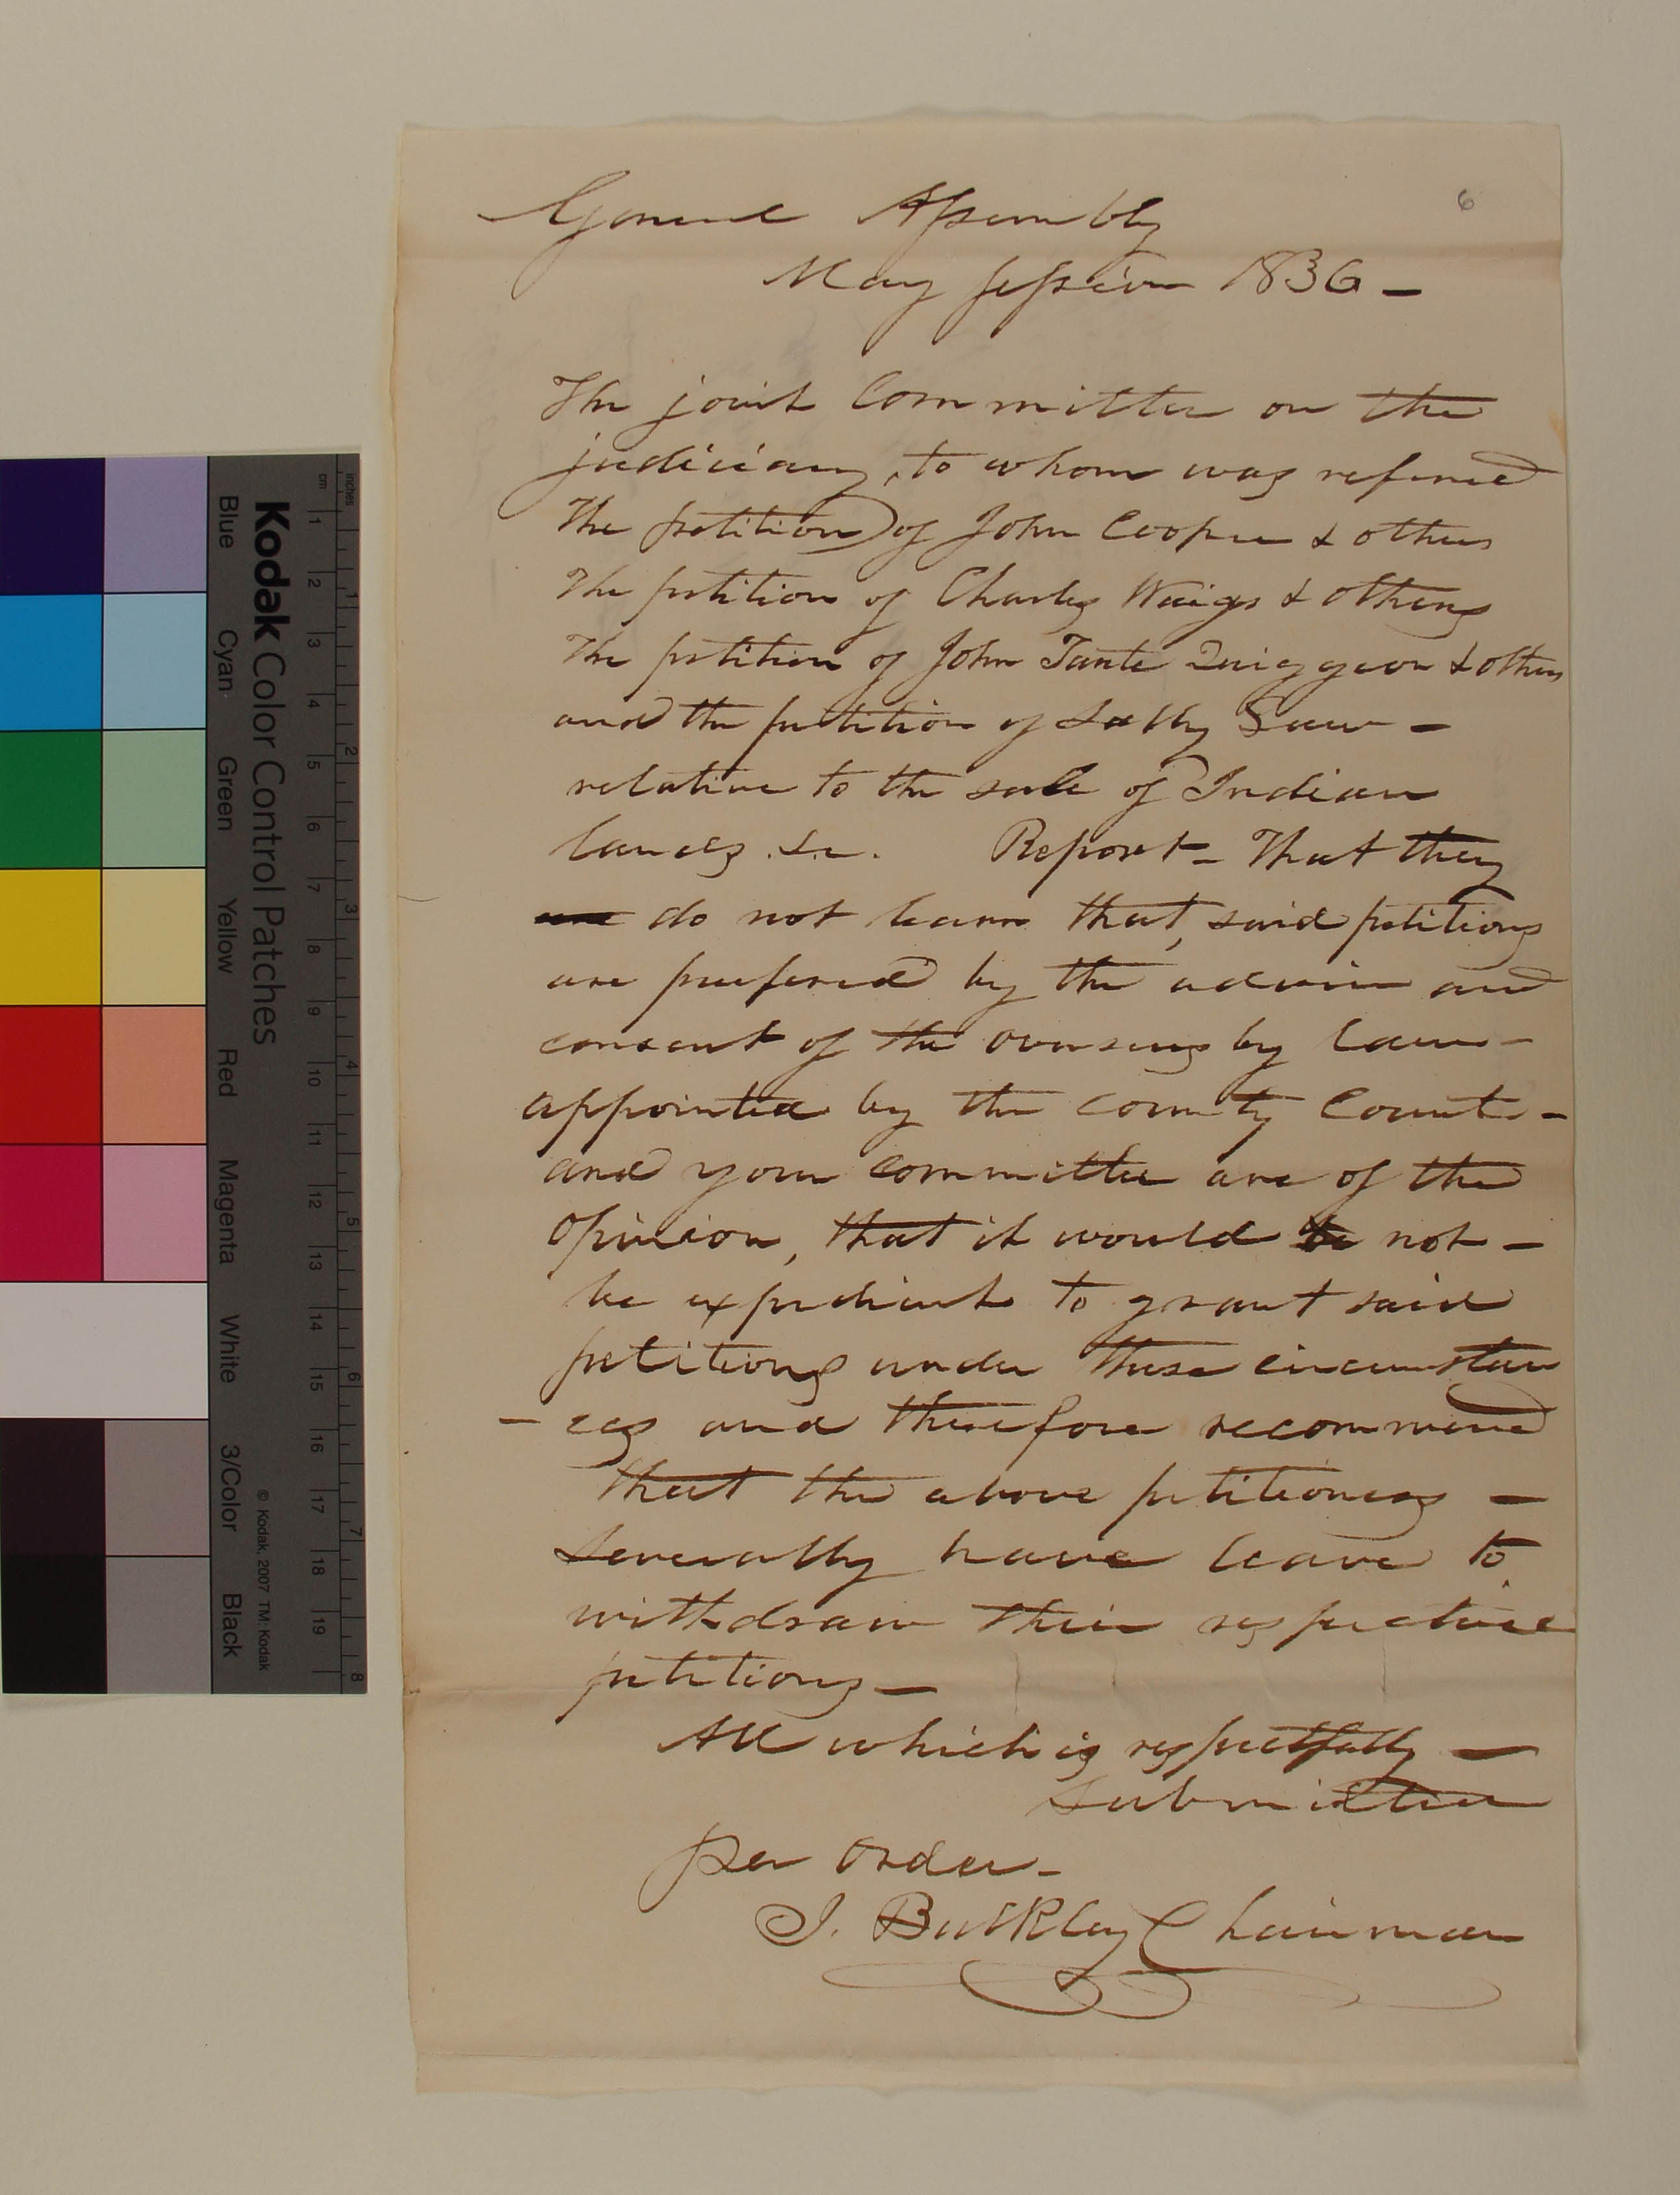 6
General Assembly
May Session 1836 -
The joint Committee on the
judiciary, to whom was refered
The petition of John Cooper & others
The petition of Charles & others
The petition of John Tante & others
and the petition of Sally -
relative to the sale of Indian
lands &c. Report - That they
do not learn that, said petitions
are prefered by the advice and
consent of the overseers by law -
appointed by the county Court -
and your committee are of the
opinion, that it would be not -
be expedient to grant said
petitions under these circumstan
- ces and therefore recommend
that the above petitioners -
Severally have leave to
withdraw their respective
petitions -
All which is respectfully -
Submitted
Per order -
J. Bulkley Chairman
Kodak Color Control Patches
© Kodak, 2007 TM: Kodak
Blue Cyan Green Yellow Red Magenta White 3/Color Black
cm 1 2 3 4 5 6 7 8 9 10 11 12 13 14 15 16 17 18 19
inches 1 2 3 4 5 6 7 8